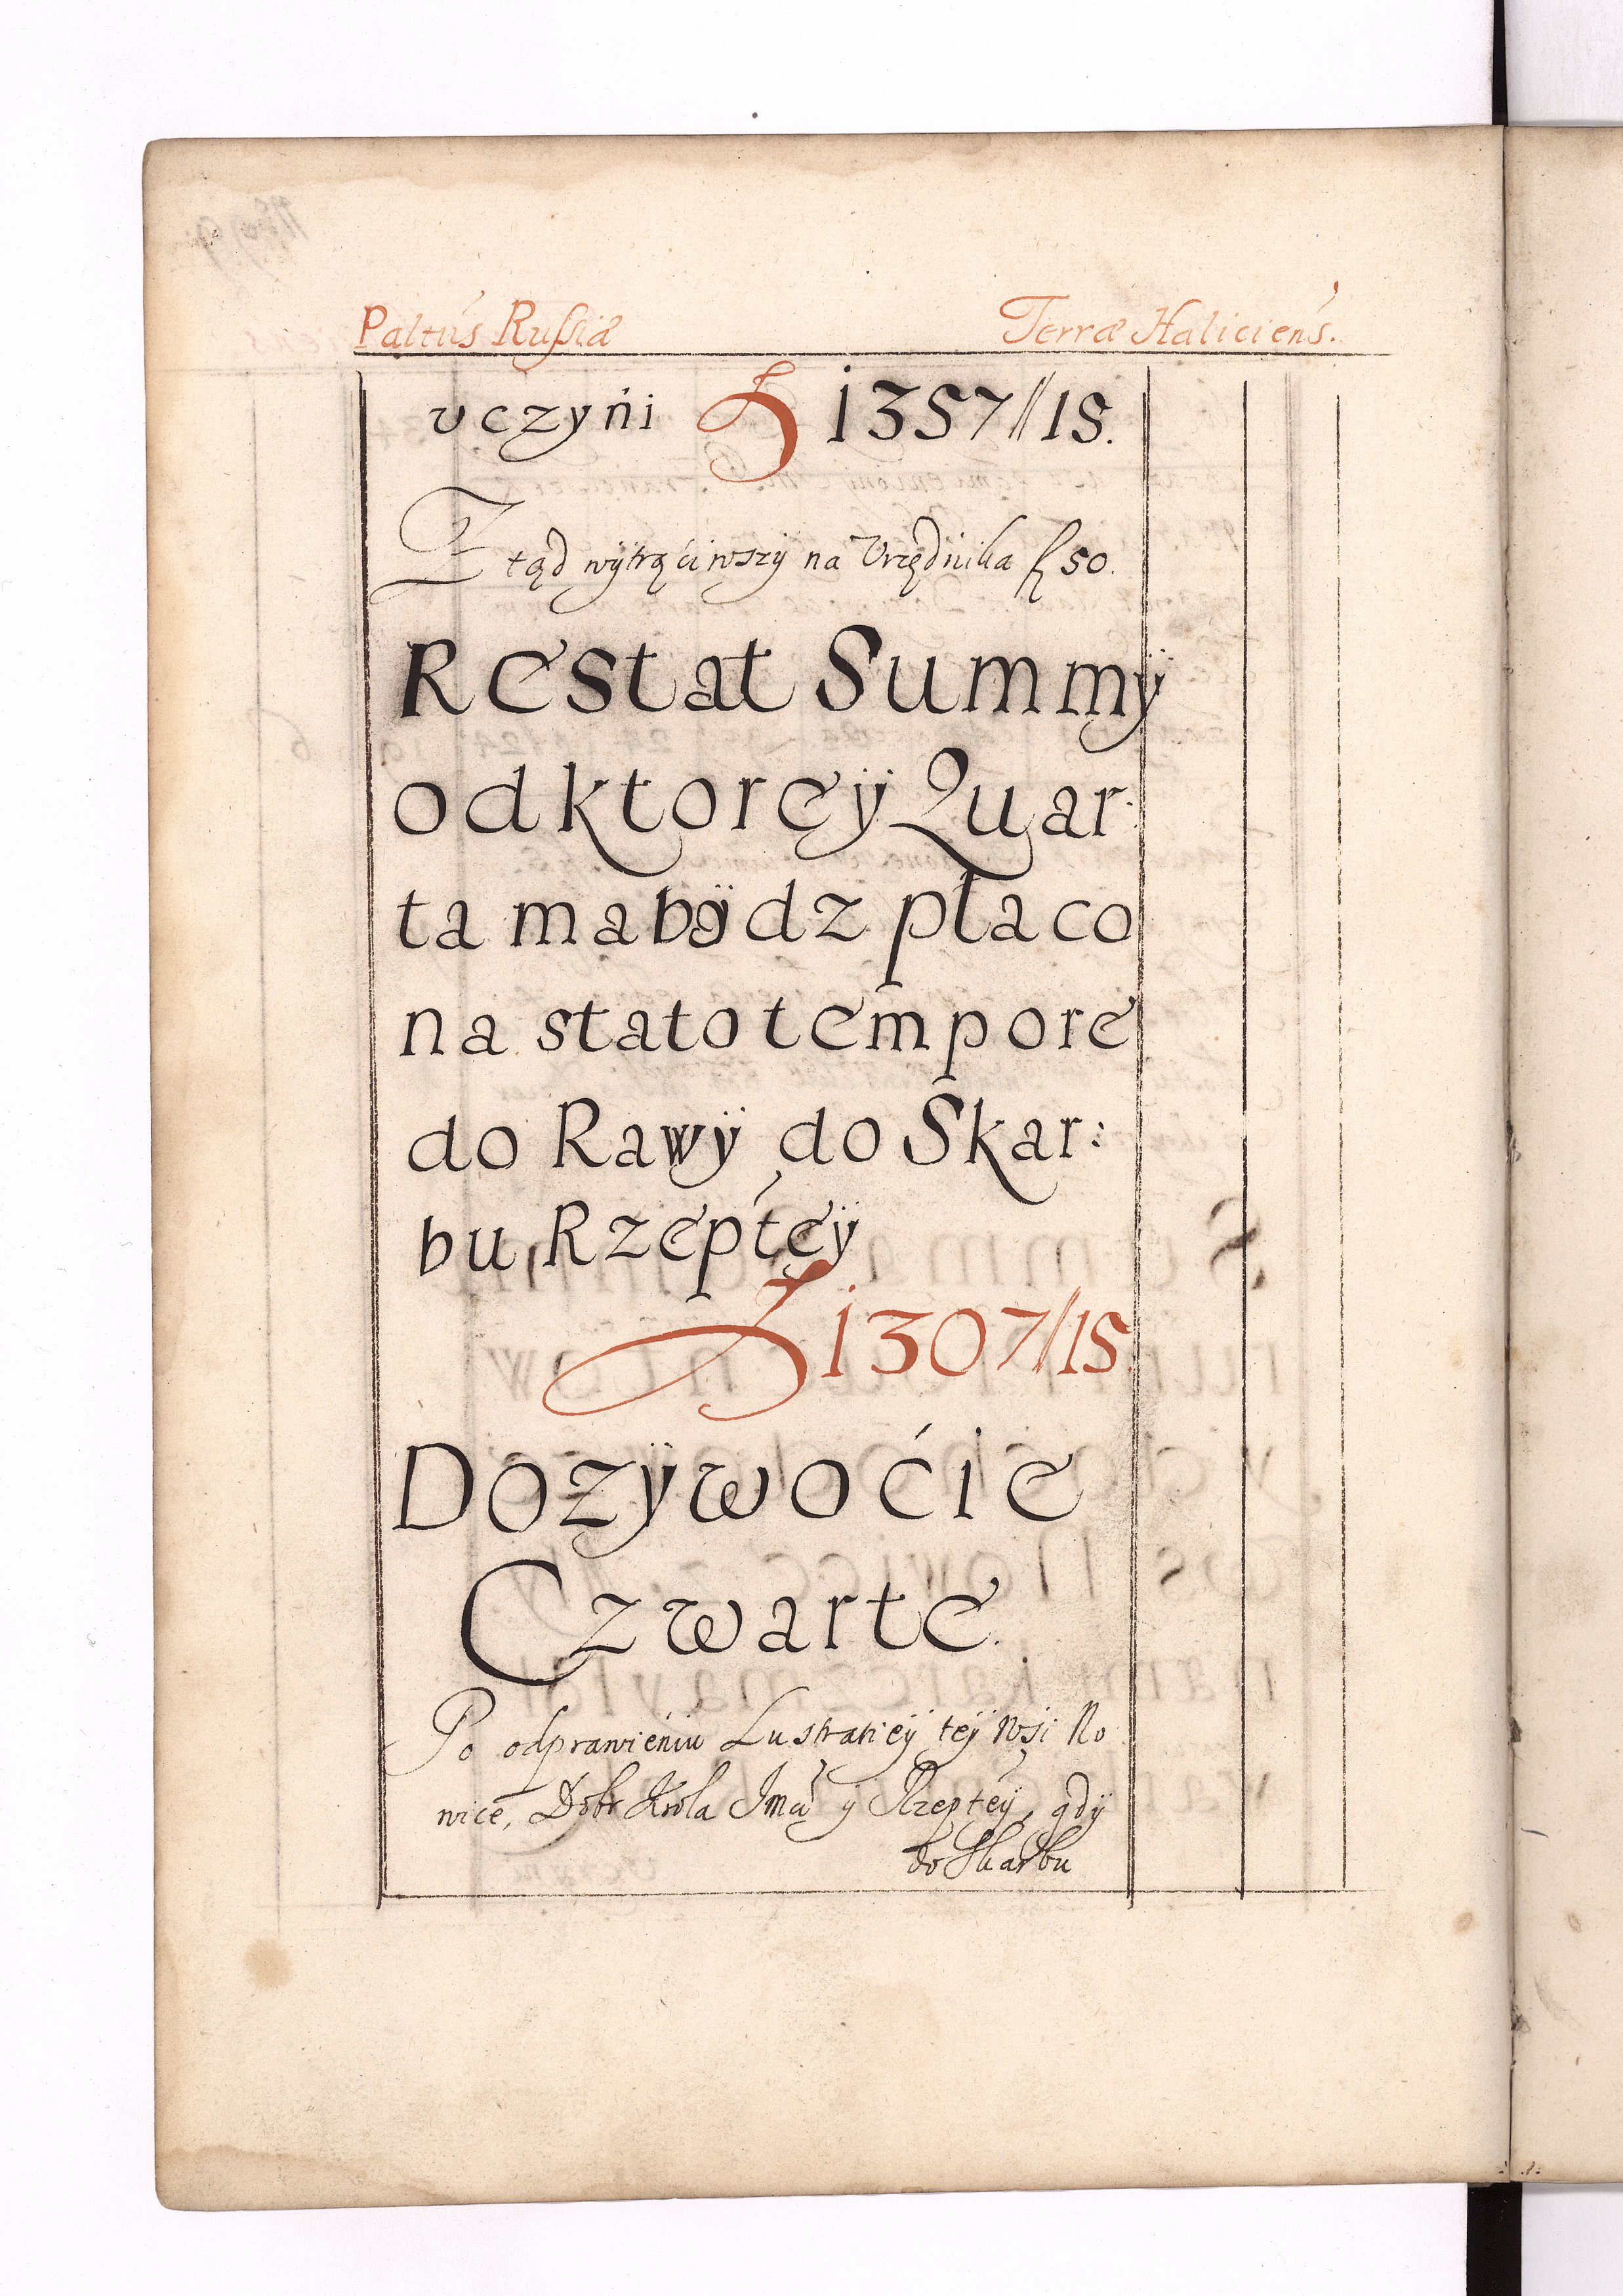 Paltús Russiæ Terræ Haliciens.
uczyńi ƒ 1357//15.
Ztąd wÿtrąciwszÿ na Vrzędnika ƒ 50.
Restat Summÿ
od ktoreÿ Quar:
ta ma bÿdz płaco
na stato tempore
do Rawÿ do Skar:
bu Rzeptéÿ
ƒ 1307//15.
Dozÿwoćie
Czwarte.
Po odprawieniu Lustracieÿ teÿ Wsi No
wice, Dobr Krola Jmći y Rzeptéÿ, gdÿ
do Skarbu